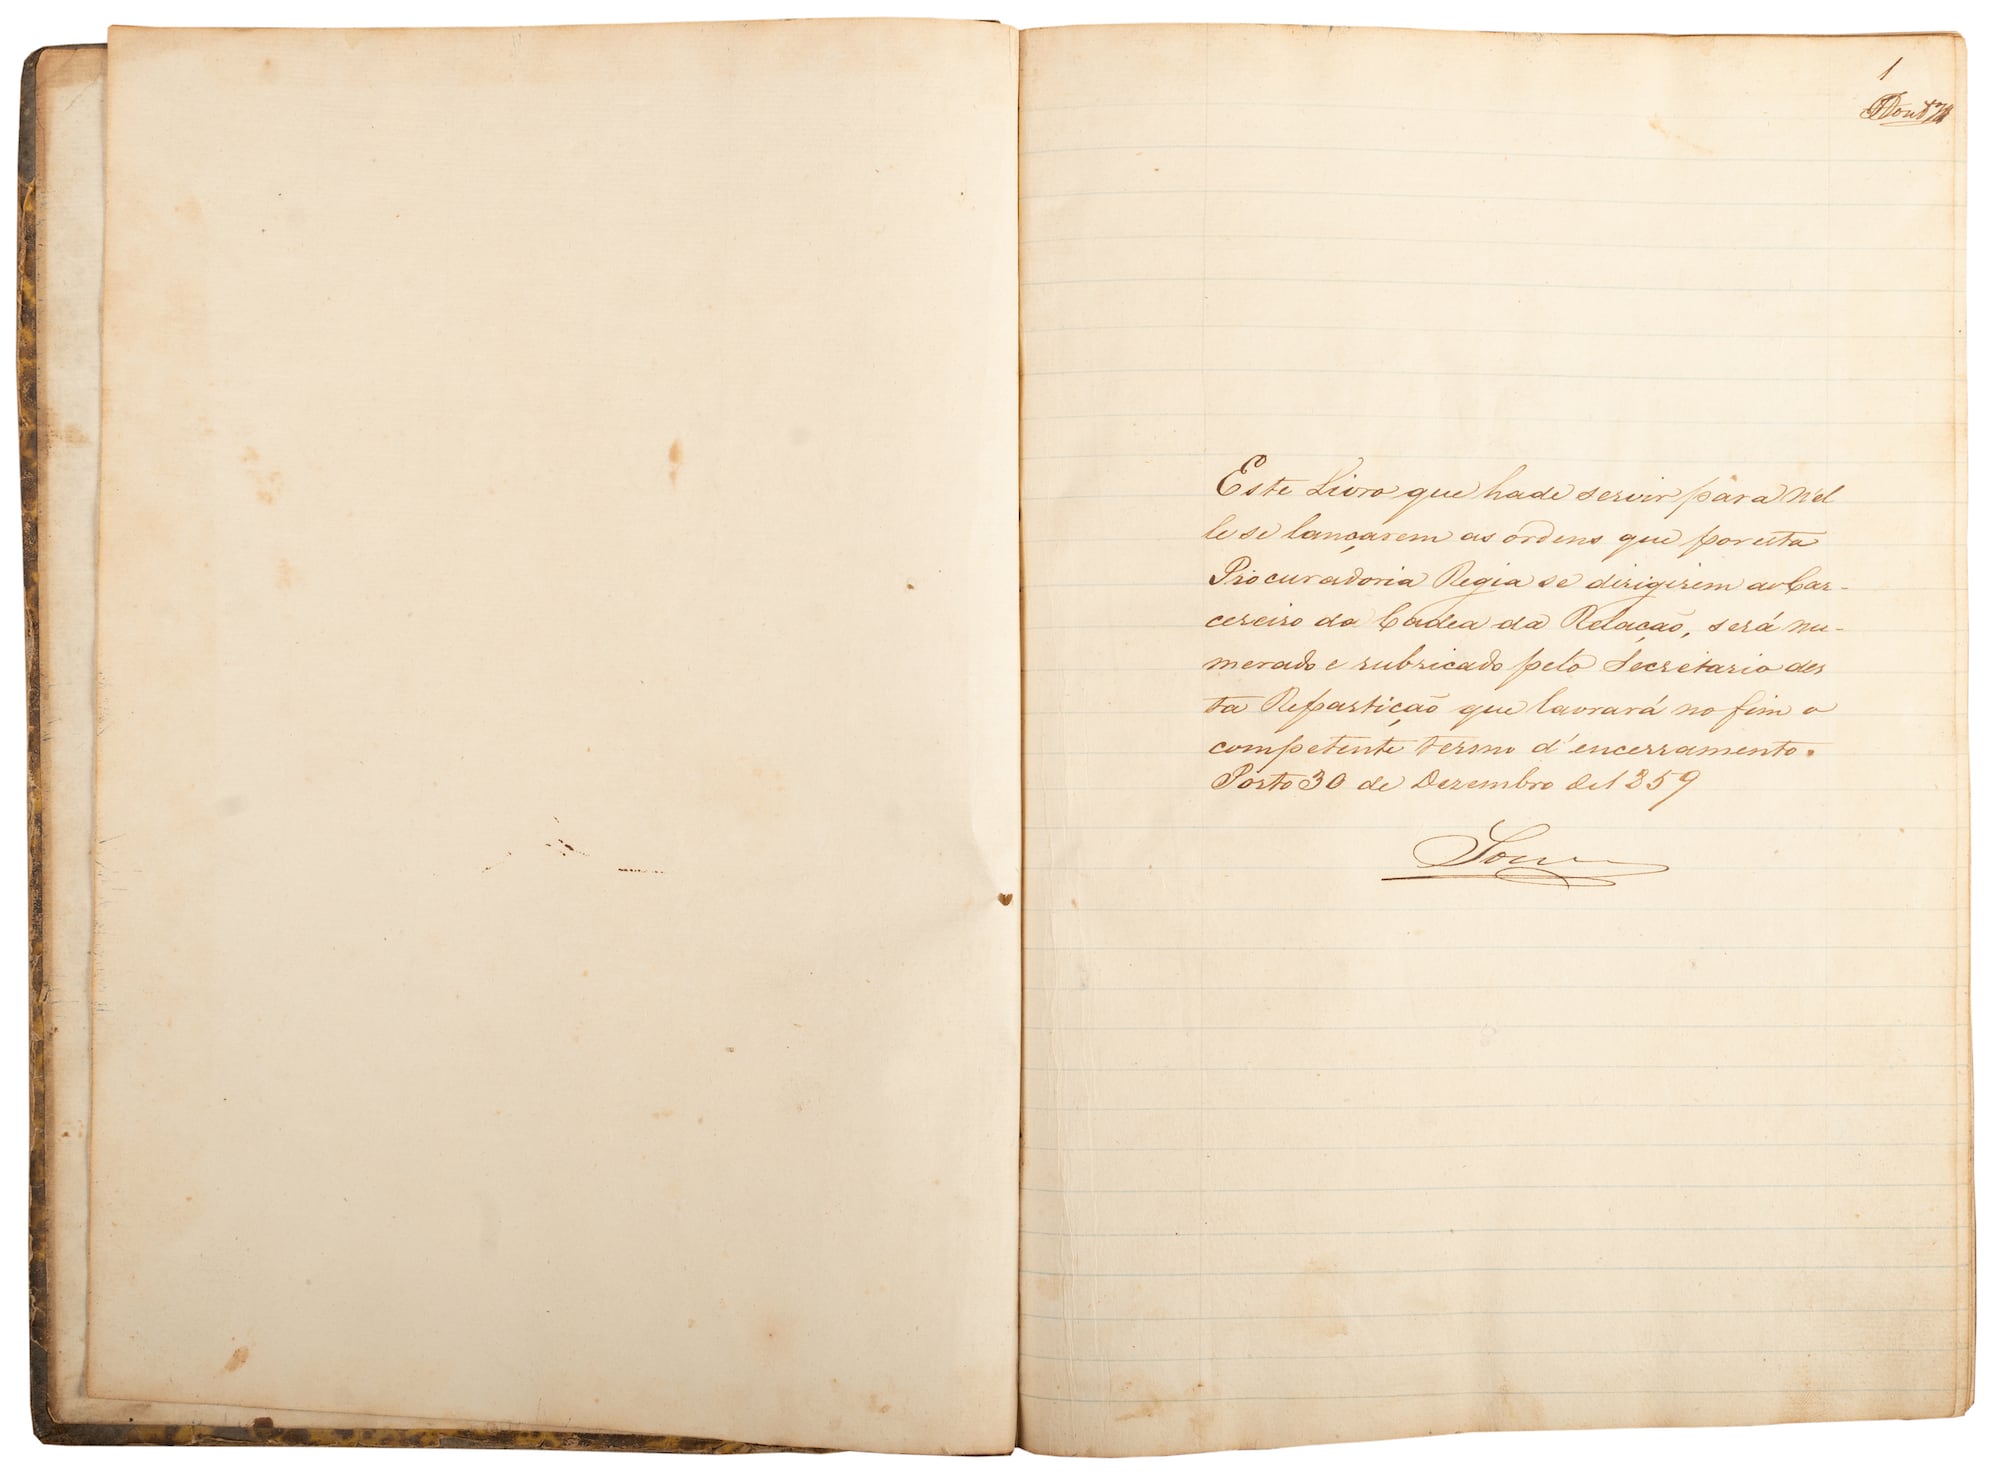 1
Este Livro que hade servir para n'el
le se lançarem as ordens que por esta
Procuradoria Regia se dirigirem ao Car-
cereiro da Cadea da Relação, será nu-
merado e rubricado pelo Secretario des
ta Repartição que lavrará no fim o
competente termo d'encerramento.
Porto 30 de Dezembro de 1859